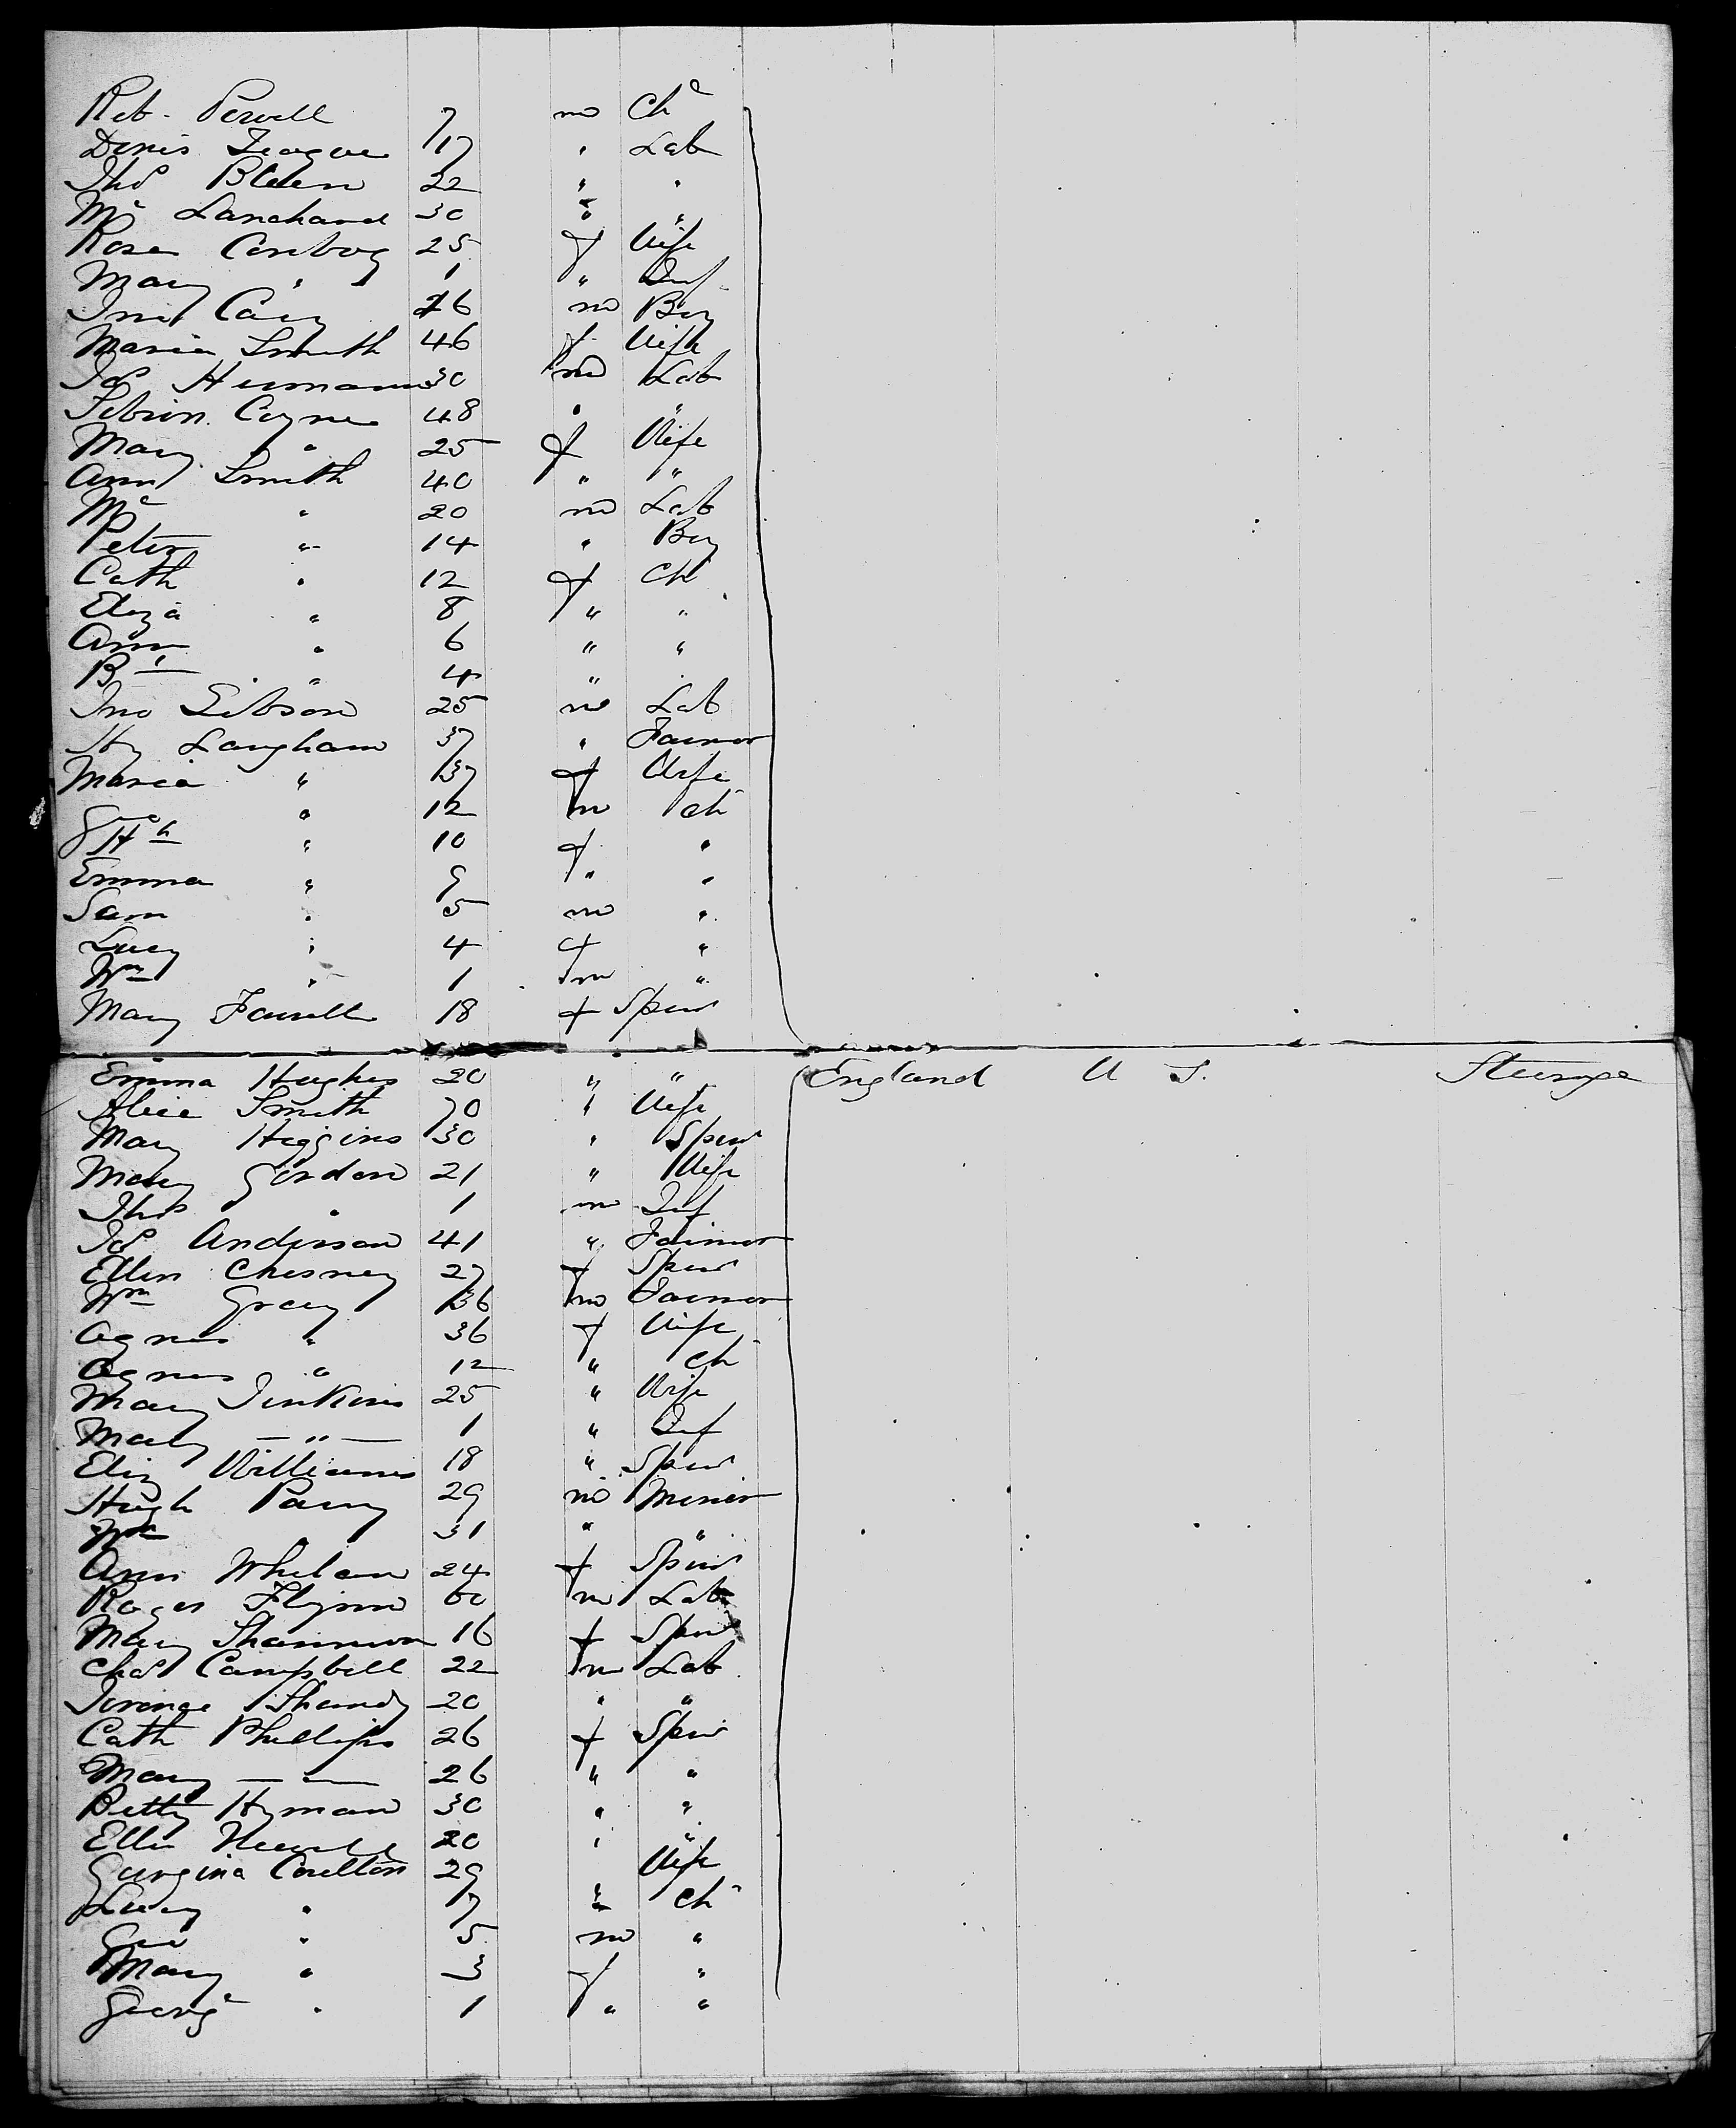 Rob. Powell 7 m Chd
Denis Teague 17 " Lab
Thos 22 " "
Mc Lanchard 30 " "
Rose Conboy 25 f Wife
Mary " 1 " Inf
Jno Cary 16 m Boy
Maria Smith 46 f Wife
Jas Humann 30 m Lab
Coyne 48 " "
Mary " 25 f Wife
Ann Smith 40 " "
Mc " 20 m Lab
Peter " 14 " Boy
Cath " 12 f Ch
Eliza " 8 " "
Ann " 6 " "
Bt " 4 "
Jno Gibson 25 m Lab
Hy Langham 37 " Farmer
Maria " 37 f Wife
Geo " 12 m Ch
Hh " 10 f "
Emma " 9 " "
Sam " 5 m "
Lucy " 4 f "
Wm " 1 m "
Mary Farrell 18 f Spin
Emma Hughes 20 " " England U S. Steerage
Alice Smith 70 " Wife
Mary Higgins 30 " Spin
Mary Gordon 21 " Wife
Thos " 1 m Inf
Jas Anderson 41 " Farmer
Ellen Chesney 27 f Spin
Wm Gray 36 m Farmer
Agnes " 36 f Wife
Agnes " 12 " Ch
Mary Jenkins 25 " Wife
Mary — " — 1 " Inf
Eliz Williams 18 " Spin
Hugh Parry 29 m Miner
Wm 31 " "
Ann Whelan 24 f Spin
Roger Flynn 60 m Lab
Mary Shannon 16 f Spin
Chas Campbell 22 m Lab
Terence Shandy 20 " "
Cath Phillips 26 f Spin
Mary — " — 26 " "
Betty Hyman 30 " "
Ellen 20 " "
Gurgina Coulton 29 Wife
Lucy " 7 " Ch
Geo " 5 m "
Mary " 3 f "
Georg " 1 " "